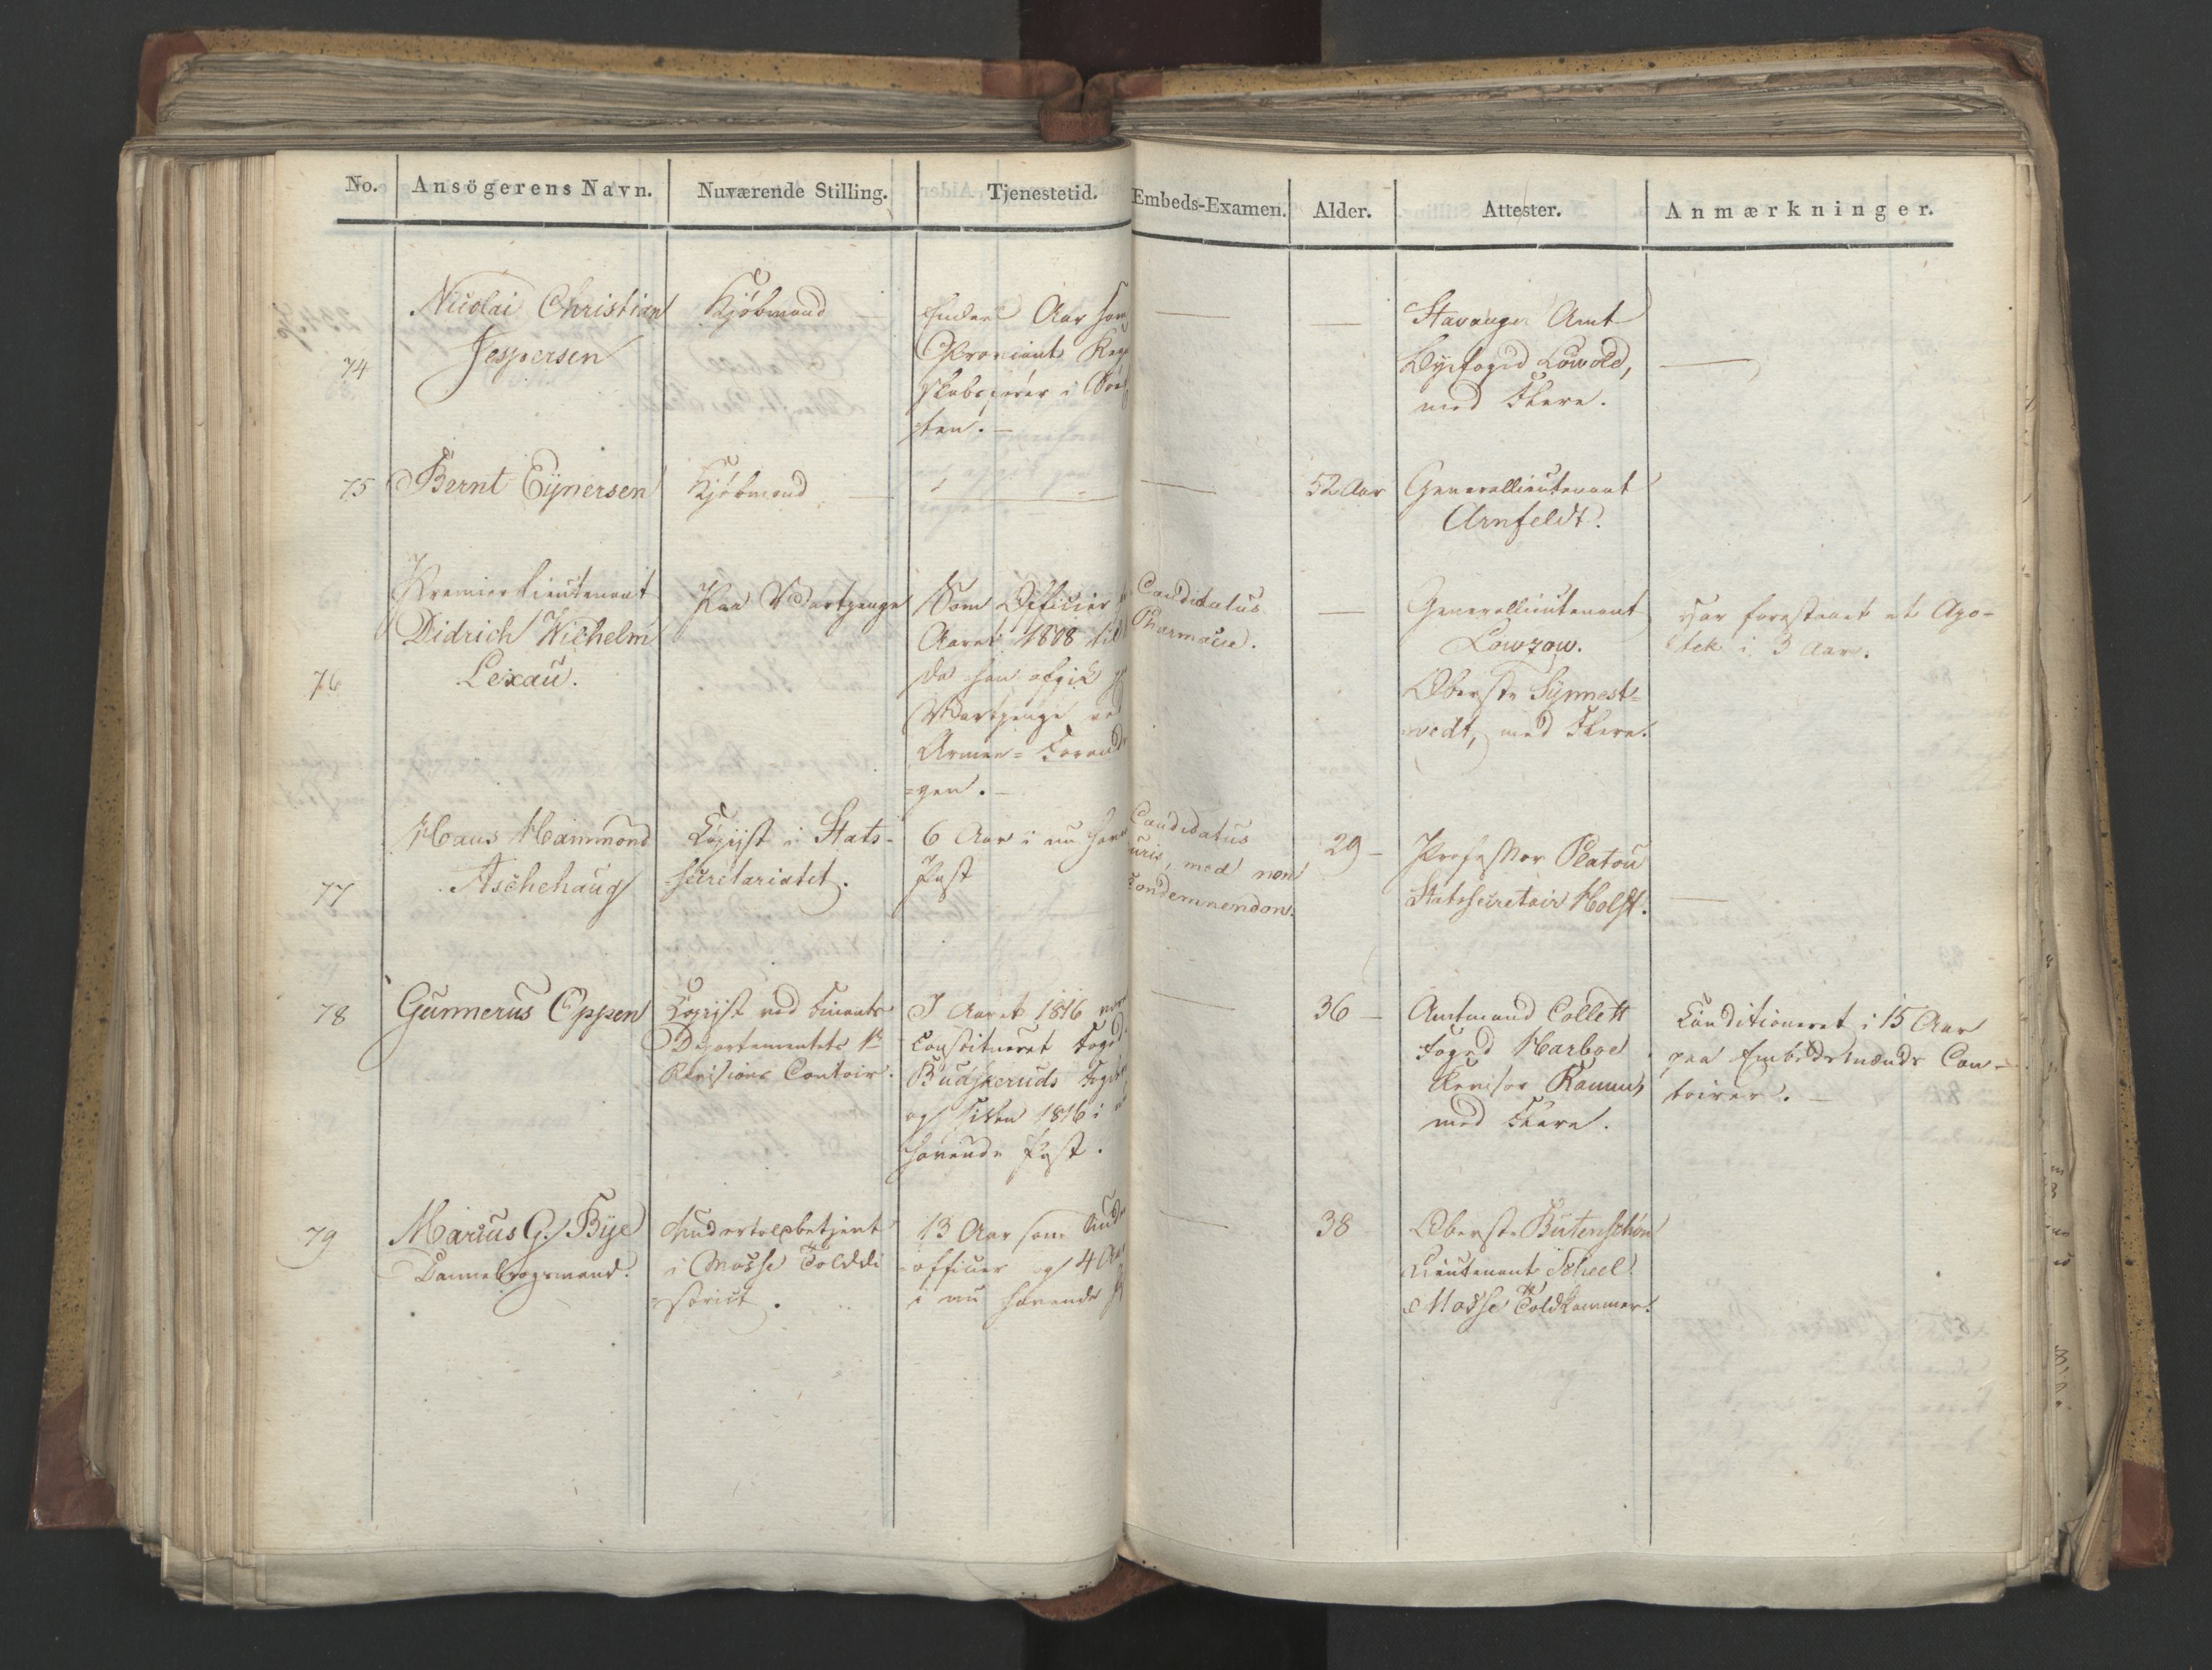 No. Ansögerens Navn. Nuværende Stilling. Tjenestetid. Embeds-Examen. Alder. Attester. Anmærkninger.
74
Nicolai Christian
Jespersen
Kjöbmand
Aar som
Proviant Reg
skabsförer i
sten.
Stavanger Amt
Byefoged Löwold,
med Flere.
75
Bernt Eÿnersen
Kjöbmand
52 Aar
Generallieutenant
Arnfeldt.
76
Premierlieutenant
Didrich Wilhelm
Lexau.
Paa Vartpenge
Som Officier
Aaret 1808 til
da han afgik
Vartpenge ved
Armee-Forand
=gen.
Candidatus
Pharmacie.
Generallieutenant
Lowzow.
Oberste Sÿnnest=
vedt, med Flere.
har forestaaet et Apo=
thek i 3 Aar.
77
Hans Hammond
Aschehaug
Copiist i Stats-
Secretariatet.
6 Aar i nu hav
Post
Candidatus
uris, med non
condemnendus
29
Professor Platou
Statssecretair Holst.
78
Gunnerus Eppen
Copiist ved Finants
Departementets 1ste
Revisions Contoir.
I Aaret 1816
constitueret Foged
Buskeruds Fogd
og siden 1816 i
havende Post.
36
Amtmand Collett
Foged Harboe
Revisor Ramm,
med Flere.
Conditioneret i 15 Aar
paa Embedsmænds Con-
toirer.
79
Marius G. Bye
Dannebrogsmand.
Undertoldbetjent
i Mosse Tolddi
=strict.
13 Aar som Und
=officier og 4 Aar
i nu havende
38
Oberste Butenschön
Lieutenant Scheel.
Mosse Toldkammer.